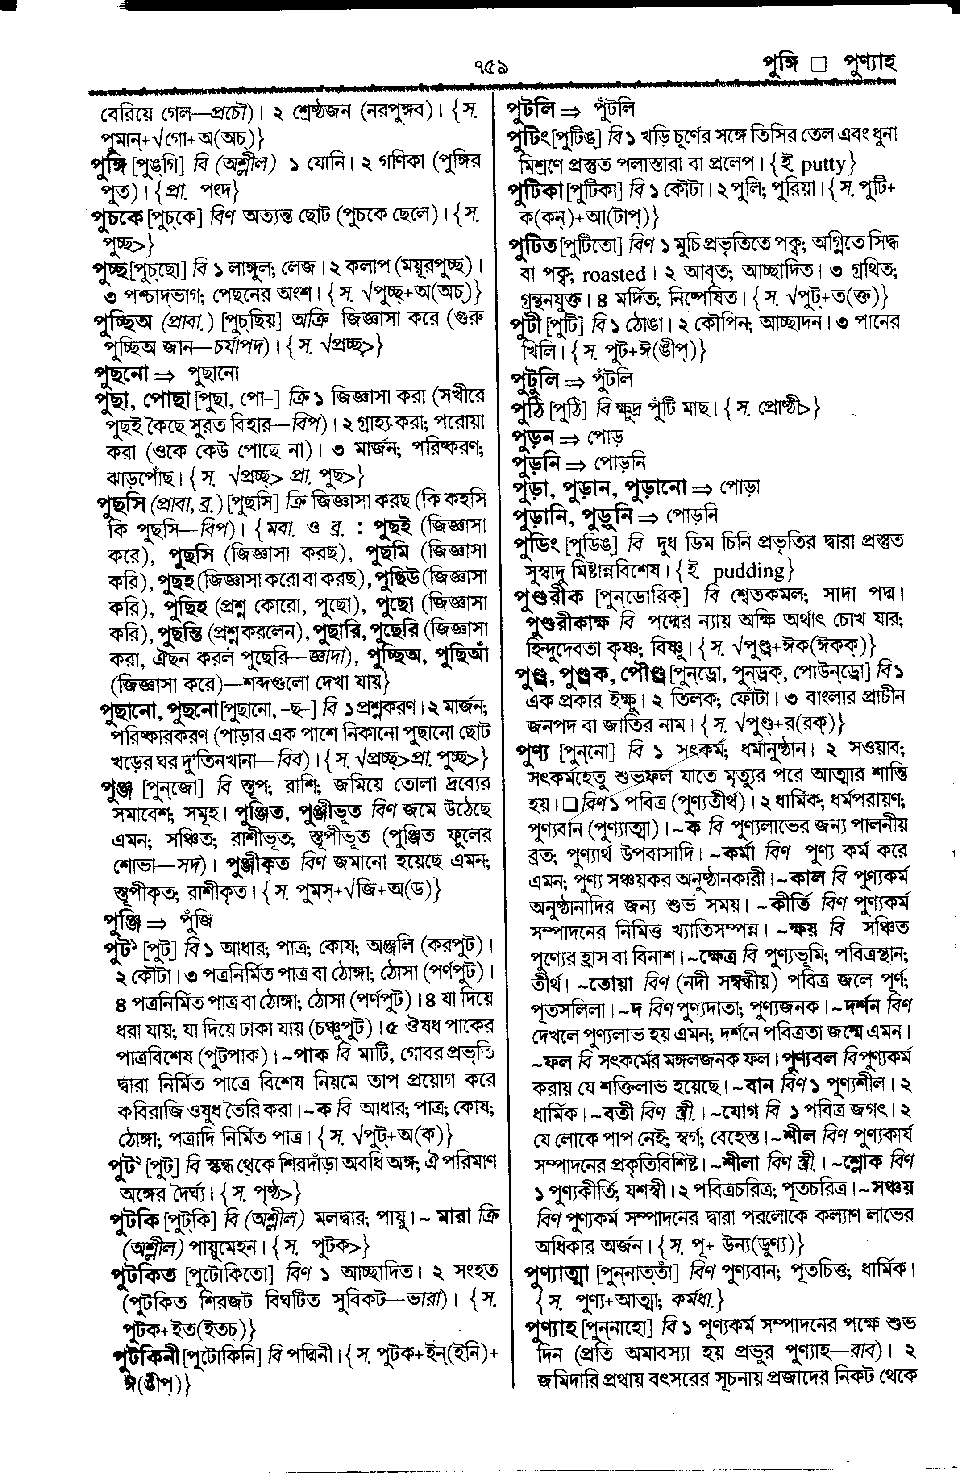 ৭৫৯
পুঙ্গি □ পুণ্যাহ
বেরিয়ে গেল—প্রচৌ)। ২ শ্রেষ্ঠজন (নরপুঙ্গব)। {স.
পুমান্+√গো+অ(অচ্)}
পুঙ্গি [পুঙ্‌গি] বি (অশ্লীল) ১ যোনি। ২ গণিকা (পুঙ্গির
পুত)। {প্রা. পংদ}
পুচকে [পুচ্‌কে] বিণ অত্যন্ত ছোট (পুচকে ছেলে)। {স.
পুচ্ছ>}
পুচ্ছ [পুচ্‌ছো] বি ১ লাঙ্গুল; লেজ। ২ কলাপ (ময়ূরপুচ্ছ)।
৩ পশ্চাদভাগ; পেছনের অংশ। {স. √পুচ্ছ্+অ(অচ্)}
পুচ্ছিঅ (প্রাবা.) [পুচ্‌ছিয়] অক্রি জিজ্ঞাসা করে (গুরু
পুচ্ছিঅ জান—চর্যাপদ)। {স. √প্রচ্ছ্>}
পুছনো ⇒ পুছানো
পুছা, পোছা [পুছা, পো-] ক্রি ১ জিজ্ঞাসা করা (সখীরে
পুছই কৈছে সুরত বিহার—বিপ)। ২ গ্রাহ্য করা; পরোয়া
করা (ওকে কেউ পোছে না)। ৩ মার্জন; পরিষ্করণ;
ঝাড়পোঁছ। {স. √প্রচ্ছ্> প্রা. পুছ>}
পুছসি (প্রাবা, ব্র.) [পুছসি] ক্রি জিজ্ঞাসা করছ (কি কহসি
কি পুছসি—বিপ)। {মবা. ও ব্র. : পুছই (জিজ্ঞাসা
করে), পুছসি (জিজ্ঞাসা করছ), পুছমি (জিজ্ঞাসা
করি), পুছহ (জিজ্ঞাসা করো বা করছ), পুছিউ (জিজ্ঞাসা
করি), পুছিহ (প্রশ্ন কোরো, পুছো), পুছো (জিজ্ঞাসা
করি), পুছন্তি (প্রশ্ন করলেন), পুছারি, পুছেরি (জিজ্ঞাসা
করা, ঐছন করল পুছেরি—জ্ঞাদা), পুচ্ছিঅ, পুছিআঁ
(জিজ্ঞাসা করে)—শব্দগুলো দেখা যায়}
পুছানো, পুছনো [পুছানো, -ছ-] বি ১ প্রশ্নকরণ। ২ মার্জন;
পরিষ্কারকরণ (পাড়ার এক পাশে নিকানো পুছানো ছোট
খড়ের ঘর দু'তিনখানা—বিব)। {স. √প্রচ্ছ্>প্রা. পুচ্ছ>}
পুঞ্জ [পুন্‌জো] বি স্তূপ; রাশি; জমিয়ে তোলা দ্রব্যের
সমাবেশ; সমূহ। পুঞ্জিত, পুঞ্জীভূত বিণ জমে উঠেছে
এমন; সঞ্চিত; রাশীভূত; স্তূপীভূত (পুঞ্জিত ফুলের
শোভা—সদ)। পুঞ্জীকৃত বিণ জমানো হয়েছে এমন;
স্তূপীকৃত; রাশীকৃত। {স. পুমস্+√জি+অ(ড)}
পুঞ্জি ⇒ পুঁজি
পুট১ [পুট্] বি ১ আধার; পাত্র; কোষ; অঞ্জলি (করপুট)।
২ কৌটা। ৩ পত্রনির্মিত পাত্র বা ঠোঙ্গা; ঠোসা (পর্ণপুট)।
৪ পত্রনির্মিত পাত্র বা ঠোঙ্গা; ঠোসা (পর্ণপুট)। ৪ যা দিয়ে
ধরা যায়; যা দিয়ে ঢাকা যায় (চঞ্চুপুট)। ৫ ঔষধ পাকের
পাত্রবিশেষ (পুটপাক)। ~পাক বি মাটি, গোবর প্রভৃতি
দ্বারা নির্মিত পাত্রে বিশেষ নিয়মে তাপ প্রয়োগ করে
কবিরাজি ওষুধ তৈরি করা। ~ক বি আধার; পাত্র; কোষ;
ঠোঙ্গা; পত্রাদি নির্মিত পাত্র। {স. √পুট্+অ(ক)}
পুট২ [পুট্] বি স্কন্ধ থেকে শিরদাঁড়া অবধি অঙ্গ; ঐ পরিমাণ
অঙ্গের দৈর্ঘ্য। {স. পৃষ্ঠ>}
পুটকি [পুট্‌কি] বি (অশ্লীল) মলদ্বার; পায়ু। ~ মারা ক্রি
(অশ্লীল) পায়ুমেহন। {স. পুটক>}
পুটকিত [পুটোকিতো] বিণ ১ আচ্ছাদিত। ২ সংহত
(পুটকিত শিরজট বিঘটিত সুবিকট—ভারা)। {স.
পুটক+ইত(ইতচ্)}
পুটকিনী [পুটোকিনি] বি পদ্মিনী। {স. পুটক+ইন্(ইনি)+
ঈ(ঙীপ্)}
পুটলি ⇒ পুঁটলি
পুটিং [পুটিঙ্] বি ১ খড়ি চূর্ণের সঙ্গে তিসির তেল এবং ধুনা
মিশ্রণে প্রস্তুত পলাস্তারা বা প্রলেপ। {ই putty}
পুটিকা [পুটিকা] বি ১ কৌটা। ২ পুলি; পুরিয়া। {স. পুটি+
ক(কন্)+আ(টাপ্)}
পুটিত [পুটিতো] বিণ ১ মুচি প্রভৃতিতে পক্ব; অগ্নিতে সিদ্ধ
বা পক্ব; roasted। ২ আবৃত; আচ্ছাদিত। ৩ গ্রথিত;
গ্রন্থনযুক্ত। ৪ মর্দিত; নিষ্পেষিত। {স. √পুট্+ত(ক্ত)}
পুটী [পুটি] বি ১ ঠোঙা। ২ কৌপিন; আচ্ছাদন। ৩ পানের
খিলি। {স. পুট+ঈ(ঙীপ্)}
পুটুলি ⇒ পুঁটলি
পুঠি [পুঠি] বি ক্ষুদ্র পুঁটি মাছ। {স. প্রোষ্ঠী>}
পুড়ন ⇒ পোড়
পুড়নি ⇒ পোড়নি
পুড়া, পুড়ান, পুড়ানো ⇒ পোড়া
পুড়ানি, পুড়ুনি ⇒ পোড়নি
পুডিং [পুডিঙ্] বি দুধ ডিম চিনি প্রভৃতির দ্বারা প্রস্তুত
সুস্বাদু মিষ্টান্নবিশেষ। {ই pudding}
পুণ্ডরীক [পুন্‌ডোরিক্] বি শ্বেতকমল; সাদা পদ্ম।
পুণ্ডরীকাক্ষ বি পদ্মের ন্যায় অক্ষি অর্থাৎ চোখ যার;
হিন্দুদেবতা কৃষ্ণ; বিষ্ণু। {স. √পুণ্ড্+ঈক(ঈকক্)}
পুণ্ড্র, পুণ্ড্রক, পৌণ্ড্র [পুন্‌ড্রো, পুন্‌ড্রক্, পোউন্‌ড্রো] বি ১
এক প্রকার ইক্ষু। ২ তিলক; ফোঁটা। ৩ বাংলার প্রাচীন
জনপদ বা জাতির নাম। {স. √পুণ্ড্+র(রক্)}
পুণ্য [পুন্‌নো] বি ১ সৎকর্ম; ধর্মানুষ্ঠান। ২ সওয়াব;
সৎকর্মহেতু শুভফল যাতে মৃত্যুর পরে আত্মার শান্তি
হয়। □ বিণ ১ পবিত্র (পুণ্যতীর্থ)। ২ ধার্মিক; ধর্মপরায়ণ;
পুণ্যবান (পুণ্যাত্মা)। ~ক বি পুণ্যলাভের জন্য পালনীয়
ব্রত; পুণ্যার্থ উপবাসাদি। ~কর্মা বিণ পুণ্য কর্ম করে
এমন; পুণ্য সঞ্চয়কর অনুষ্ঠানকারী। ~কাল বি পুণ্যকর্ম
অনুষ্ঠানাদির জন্য শুভ সময়। ~কীর্তি বিণ পুণ্যকর্ম
সম্পাদনের নিমিত্ত খ্যাতিসম্পন্ন। ~ক্ষয় বি সঞ্চিত
পুণ্যের হ্রাস বা বিনাশ। ~ক্ষেত্র বি পুণ্যভূমি; পবিত্রস্থান;
তীর্থ। ~তোয়া বিণ (নদী সম্বন্ধীয়) পবিত্র জলে পূর্ণ;
পূতসলিলা। ~দ বিণ পুণ্যদাতা; পুণ্যজনক। ~দর্শন বিণ
দেখলে পুণ্যলাভ হয় এমন; দর্শনে পবিত্রতা জন্মে এমন।
~ফল বি সৎকর্মের মঙ্গলজনক ফল। পুণ্যবল বি পুণ্যকর্ম
করায় যে শক্তিলাভ হয়েছে। ~বান বিণ ১ পুণ্যশীল। ২
ধার্মিক। ~বতী বিণ স্ত্রী.। ~যোগ বি ১ পবিত্র জগৎ। ২
যে লোকে পাপ নেই; স্বর্গ; বেহেস্ত। ~শীল বিণ পুণ্যকার্য
সম্পাদনের প্রকৃতিবিশিষ্ট। ~শীলা বিণ স্ত্রী.। ~শ্লোক বিণ
১ পুণ্যকীর্তি; যশস্বী। ২ পবিত্রচরিত্র; পূতচরিত্র। ~সঞ্চয়
বিণ পুণ্যকর্ম সম্পাদনের দ্বারা পরলোকে কল্যাণ লাভের
অধিকার অর্জন। {স. পূ+ উন্য(ডুণ্য)}
পুণ্যাত্মা [পুন্‌নাত্‌তাঁ] বিণ পুণ্যবান; পূতচিত্ত; ধার্মিক।
{স. পুণ্য+আত্মা; কর্মধা.}
পুণ্যাহ [পুন্‌নাহো] বি ১ পুণ্যকর্ম সম্পাদনের পক্ষে শুভ
দিন (প্রতি অমাবস্যা হয় প্রভুর পুণ্যাহ—রাব)। ২
জমিদারি প্রথায় বৎসরের সূচনায় প্রজাদের নিকট থেকে